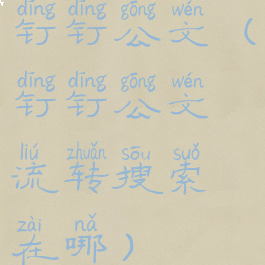 dīng dīng gōng wén
钉钉公文（
dīng dīng gōng wén
钉钉公文
liú zhuǎn sōu suǒ
流转搜索
zài nǎ
在哪）